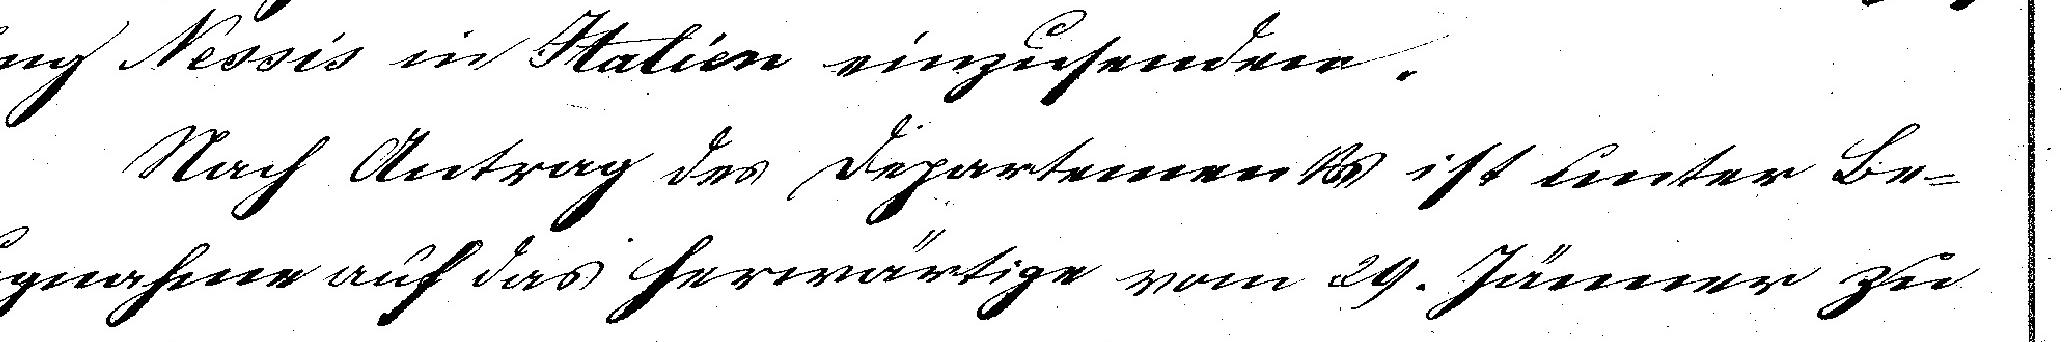 ng Nessis in Italien einzusenden.
Nach Antrag des Departements ist unter Be-
gnahme auf das herwärtige vom 29. Jänner zu